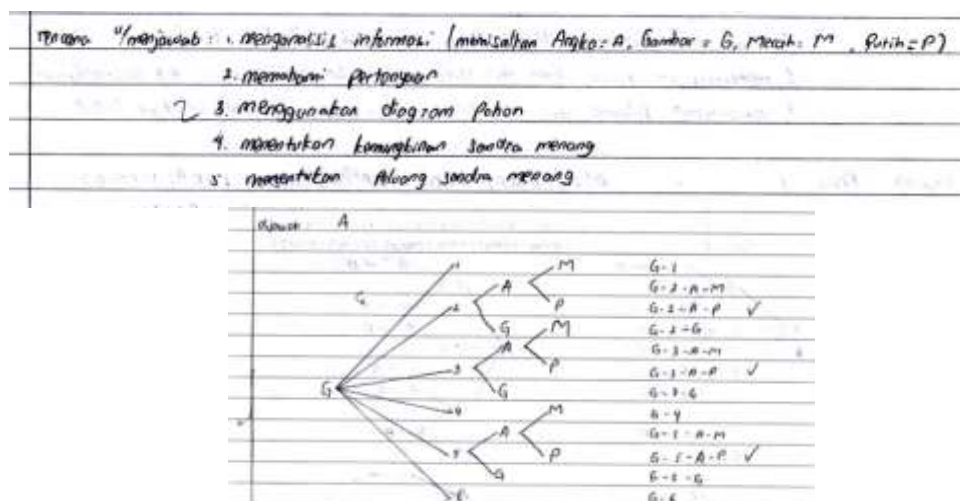 rencana u/menjawab : 1. menganalisis informasi (memisalkan Angka = A, Gambar = G, Merah = M, Putih = P)
2. memahami pertanyaan
3. menggunakan diagram pohon
4. menentukan kemungkinan Sandra menang
5. menentukan Peluang sandra menang
dijawab A
1 M G-1
A G-2-A-M
G 2 P G-2-A-P ✓
G M G-2-G
A G-3-A-M
3 P G-3-A-P ✓
G G G-3-G
4 M G-4
A G-5-A-M
5 P G-5-A-P ✓
G G-5-G
6 G-6